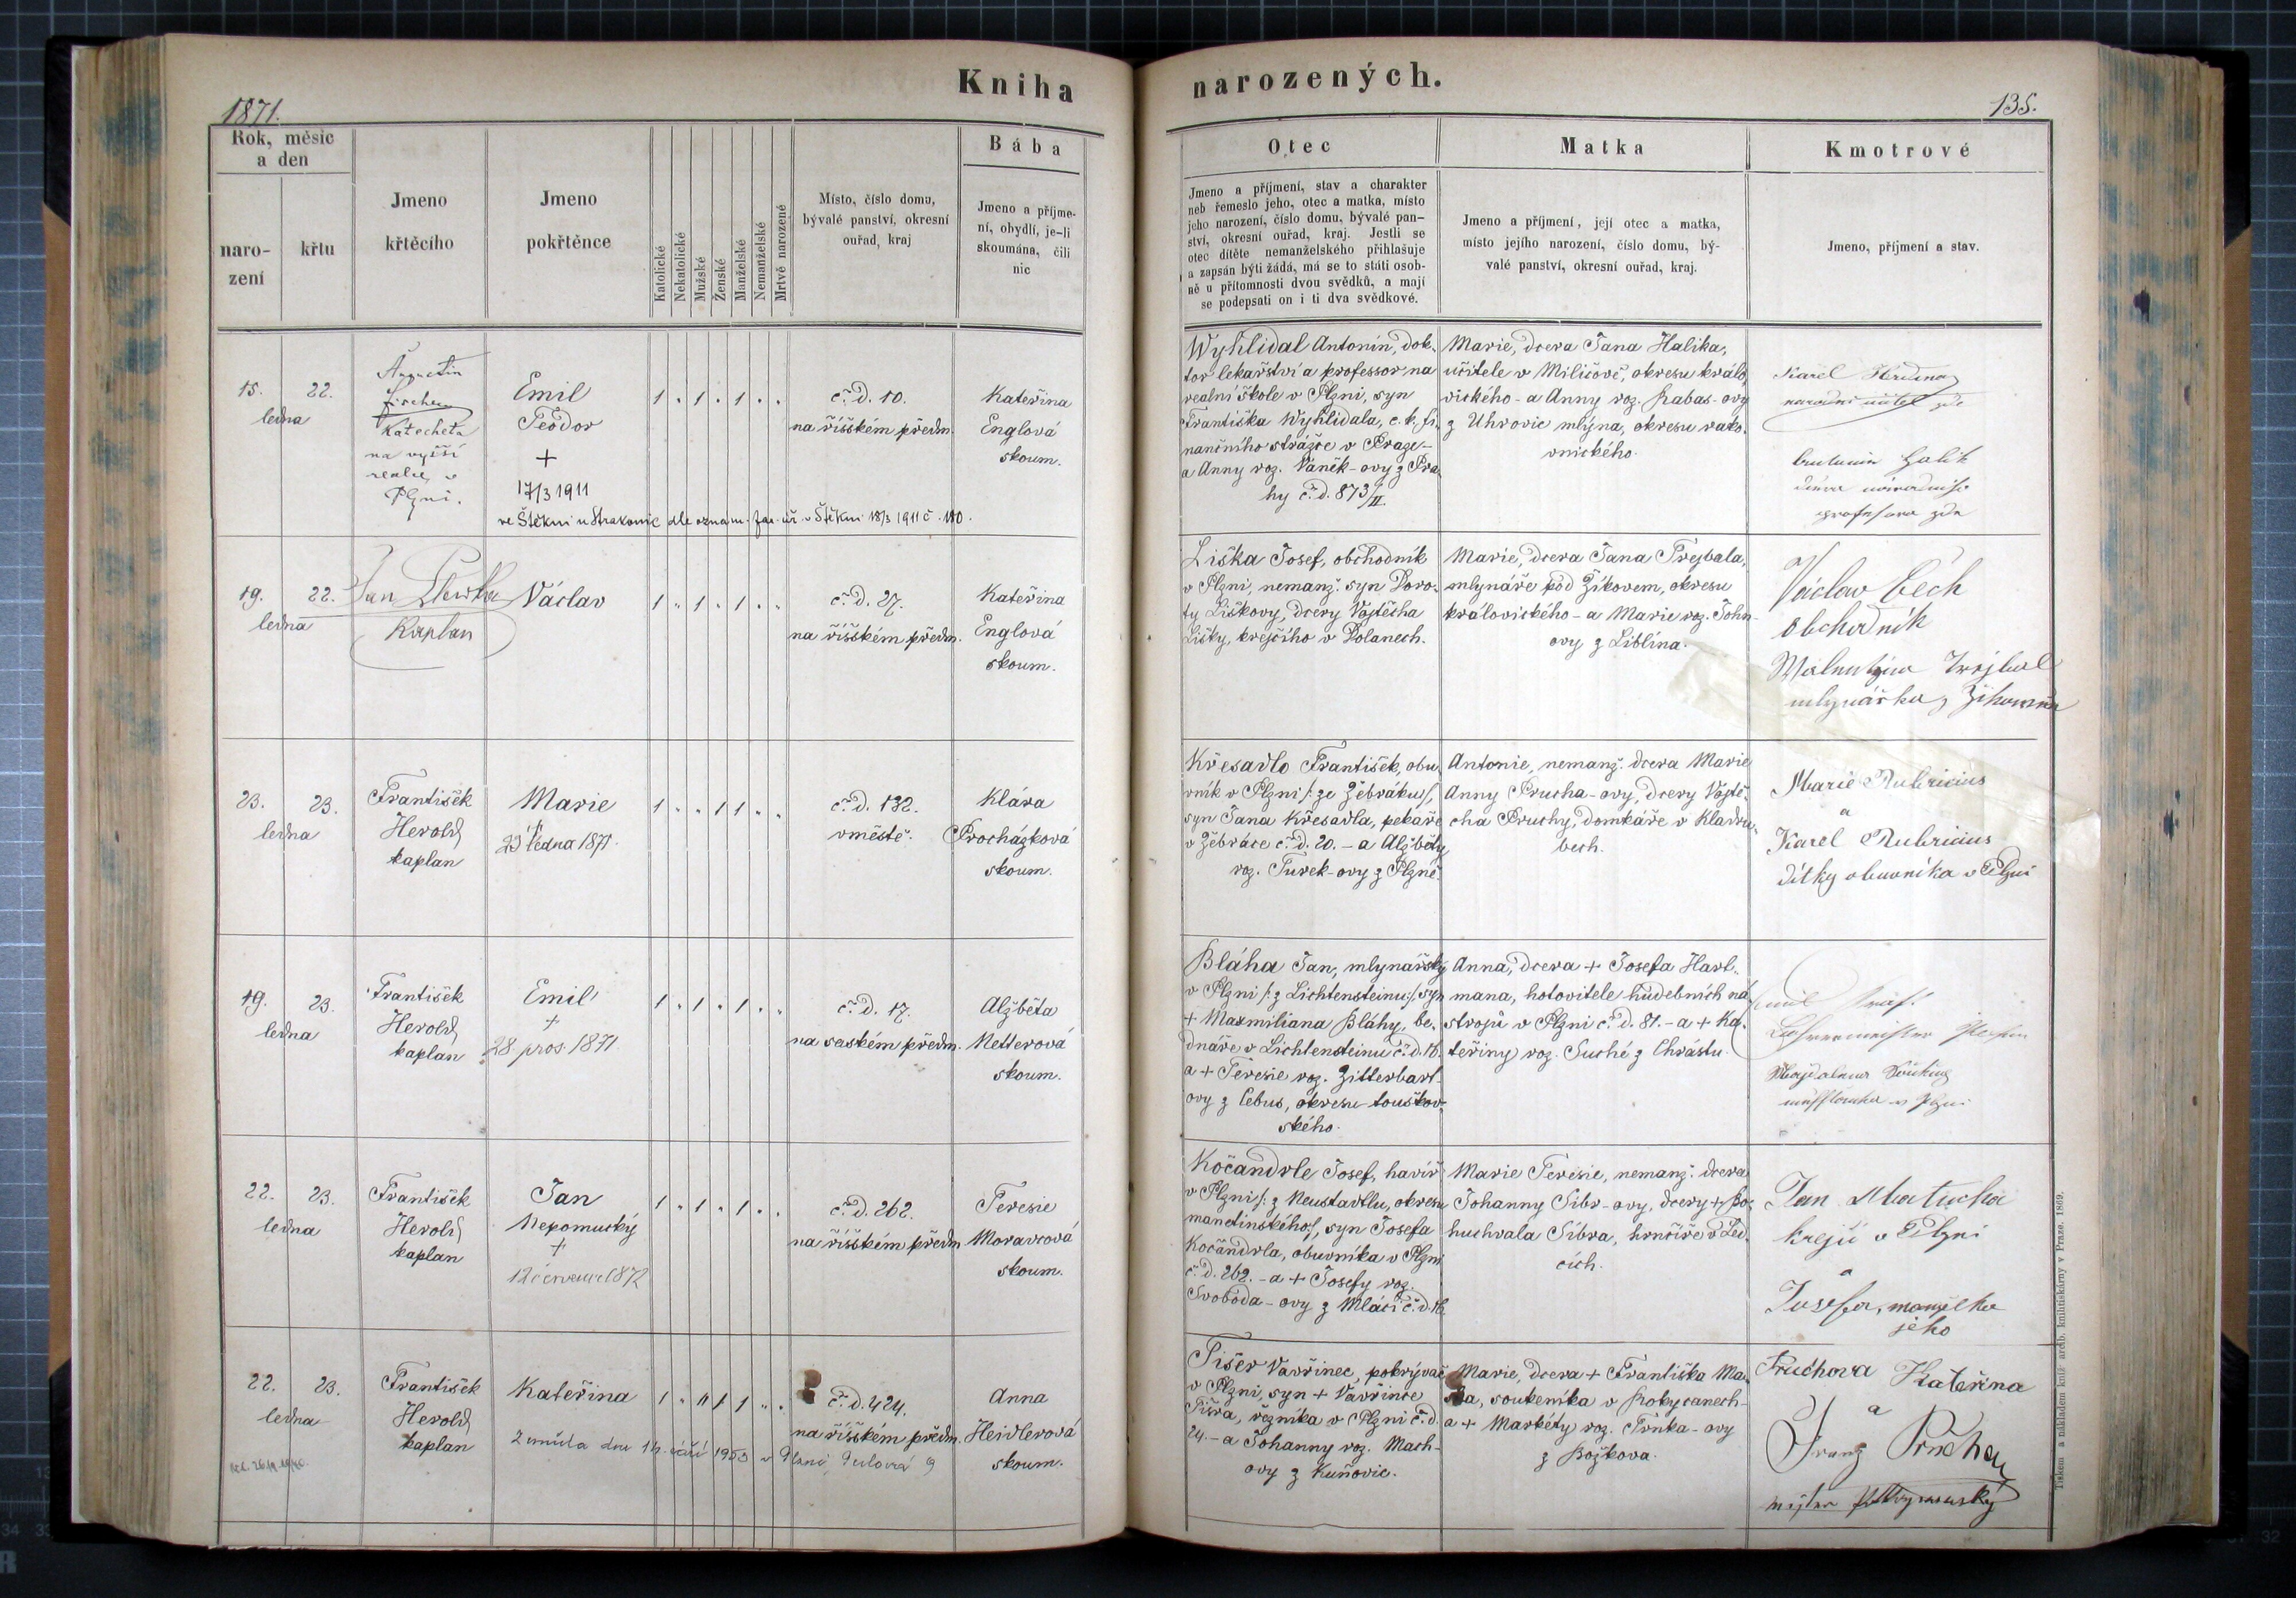 Kniha narozených.
1871.
135.
Rok, měsíc
a den
naro-
zení
křtu
Jmeno
křtěcího
Jmeno
pokřtěnce
Katolické
Nekatolické
Mužské
Ženské
Manželské
Nemanželské
Mrtvě narozené
Místo, číslo domu,
bývalé panství, okresní
ouřad, kraj
Bába
Jmeno a příjme-
ní, obydlí, je-li
skoumána, čili
nic
Otec
Jmeno a příjmení, stav a charakter
neb řemeslo jeho, otec a matka, místo
jeho narození, číslo domu, bývalé pan-
ství, okresní ouřad, kraj. Jestli se
otec dítěte nemanželského přihlašuje
a zapsán býti žádá, má se to státi osob-
ně u přítomnosti dvou svědků, a mají
se podepsati on i ti dva svědkové.
Matka
Jmeno a příjmení, její otec a matka,
místo jejího narození, číslo domu, bý-
valé panství, okresní ouřad, kraj.
Kmotrové
Jmeno, příjmení a stav.
15. 22.
ledna
Augustin
Fischer
Katecheta
na vyšší
realce v
Plzni.
Emil
Teodor
+
17/3 1911
ve Štěkni u Strakonic dle oznam. far. úř. v Štěkni 18/3 1911 č. 110.
1 " 1 " 1 " "
č. d. 10.
na říšském předm.
Kateřina
Englová
skoum.
Wyhlidal Antonín, dok-
tor lekařství a professor na
realní škole v Plzni, syn
Františka Wyhlidala, c. k. fi-
nančního strážce v Praze -
a Anny roz. Váněk-ovy z Pra-
hy č. d. 873/II.
Marie, dcera Jana Halika,
učitele v Miličově, okresu králo-
vického - a Anny roz. Rabas-ovy
z Uhrovic mlýna, okresu rako-
vnického.
Karel Hrdina
národní učitel zde
Halik
zde
19. 22.
ledna
Jan
Kaplan
Václav
1 " 1 " 1 " "
č. d. 27.
na říšském předm.
Kateřina
Englová
skoum.
Liška Josef, obchodník
v Plzni, nemanž. syn Doro-
ty Liškovy, dcery Vojtěcha
Lišky, krejčího v Dolanech.
Marie, dcera Jana Trejbala,
mlynáře pod Žíkovem, okresu
královického - a Marie roz. John-
ovy z Liblína.
Václav Čech
obchodník
Trejbal
mlynářka z
23. 23.
ledna
František
Herold
kaplan
Marie
+
23 ledna 1871.
1 " " 1 1 " "
č. d. 132.
v městě.
Klára
Procházková
skoum.
Křesadlo František, obu-
vník v Plzni /: ze Žebráku :/,
syn Jana Křesadla, pekaře
v Žebráce č. d. 20. - a Alžběty
roz. Turek-ovy z Plzně.
Antonie, nemanž. dcera Marie
Anny Prucha-ovy, dcery Vojtě-
cha Pruchy, domkáře v Kladru-
bech.
Marie Rubricius
a
Karel Rubricius
dítky obuvníka v Plzni
19. 23.
ledna
František
Herold
kaplan
Emil
+
28. pros. 1871.
1 " 1 " 1 " "
č. d. 17.
na saském předm.
Alžběta
Netlerová
skoum.
Bláha Jan, mlynářský
v Plzni /: z Lichtensteinu :/, syn
+ Maxmiliana Bláhy, be-
dnáře v Lichtensteinu č. d. 16.
a + Teresie roz. Zitterbart-
ovy z Cebus, okresu touškov-
ského.
Anna, dcera + Josefa Hart-
mana, hotovitele hudebních ná-
strojů v Plzni č. d. 81. - a + Ka-
teřiny roz. Suché z Chrástu.
22. 23.
ledna
František
Herold
kaplan
Jan
Nepomucký
+
12 července 1872
1 " 1 " 1 " "
č. d. 262.
na říšském předm.
Teresie
Moravcová
skoum.
Kočandrle Josef, havíř
v Plzni /: z Neustadtlu, okresu
manetínského :/, syn Josefa
Kočandrla, obuvníka v Plzni
č. d. 262. - a + Josefy roz.
Svoboda-ovy z Mláci č. d. 16.
Marie Teresie, nemanž. dcera
Johanny Sibr-ovy, dcery + Bo-
huchvala Sibra, hrnčíře v Led-
cích.
Jan Matucha
krejčí v Plzni
a
Josefa, manželka
jeho
22. 23.
ledna
František
Herold
kaplan
Kateřina
Zemřela dne 14. září 1953 v Plzni, 9
1 " " 1 1 " "
č. d. 424.
na říšském předm.
Anna
Heidlerová
skoum.
Tišer Vavřinec, pokrývač
v Plzni, syn + Vavřince
Tišra, řezníka v Plzni č. d.
24. - a Johanny roz. Mach-
ovy z Kuňovic.
Marie, dcera + Františka
soukeníka v Rokycanech -
a + Markéty roz. Trnka-ovy
z Božkova.
Pruchova Kateřina
a
Franz Prucha
Tiskem a nákladem kníž. arcib. knihtiskárny v Praze. 1869.